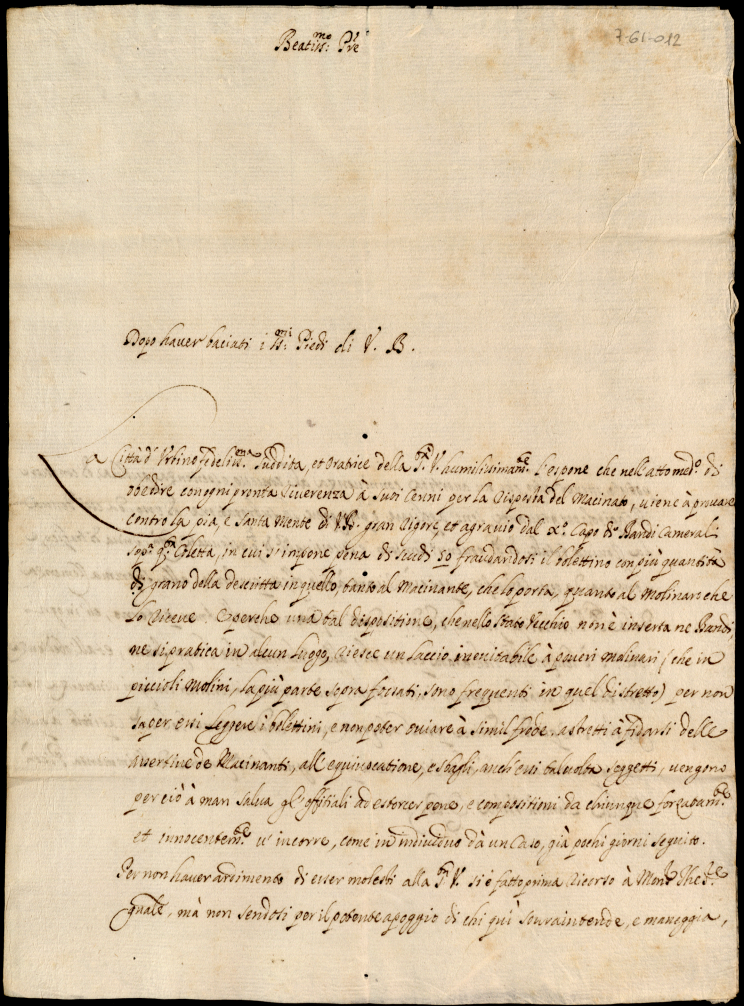 Beatiss:mo Pre
7-61-012
Dopo haver baciati i SS:mi Piedi di V. B.
La Città d'Urbino fedeliss.ma Suddita, et Oratrice della S.tà V. humilissimam.te L'espone che nell'atto med.o di
obedire con ogni pronta riverenza à suoi Cenni per la del Macinato, viene à provare
contro la pia, e Santa Mente di V.B. gran rigore, et agravio dal Capo de Bandi Camerali
sop.a q.sta Colletta, in cui s'impone pena di scudi 50 fraudandosi il bolettino con più quantità
di grano della descritta in quello, tanto al Macinante, che lo porta, quanto al Molinaro che
lo riceve. E perche una tal dispositione, che nello Stato Vecchio non è inserta ne Bandi,
ne si pratica in alcun Luogo, riesce un laccio inevitabile à poveri Molinari (che in
piccioli Molini, la più parte sopra fossati, sono frequenti in quel distretto) per non
saper essi leggere i bolettini, e non poter oviare à simil frode, astretti à fidarsi delle
assertive de Macinanti, all'equivocatione, e sbagli, anch'essi talvolta soggetti, vengono
perciò à man salva gl'offitiali ad estorcer pene, e compositioni da chiunque forzatam.te
et innocentem.te v'incorre, come in individuo dà un Caso, già pochi giorni seguito.
Per non haver ardimento di esser molesti alla S.tà V. si è fatto prima ricorso à Mons.r Thes.re
gnale, mà non sendosi per il potente apoggio di chi quì sovraintende, e maneggia,